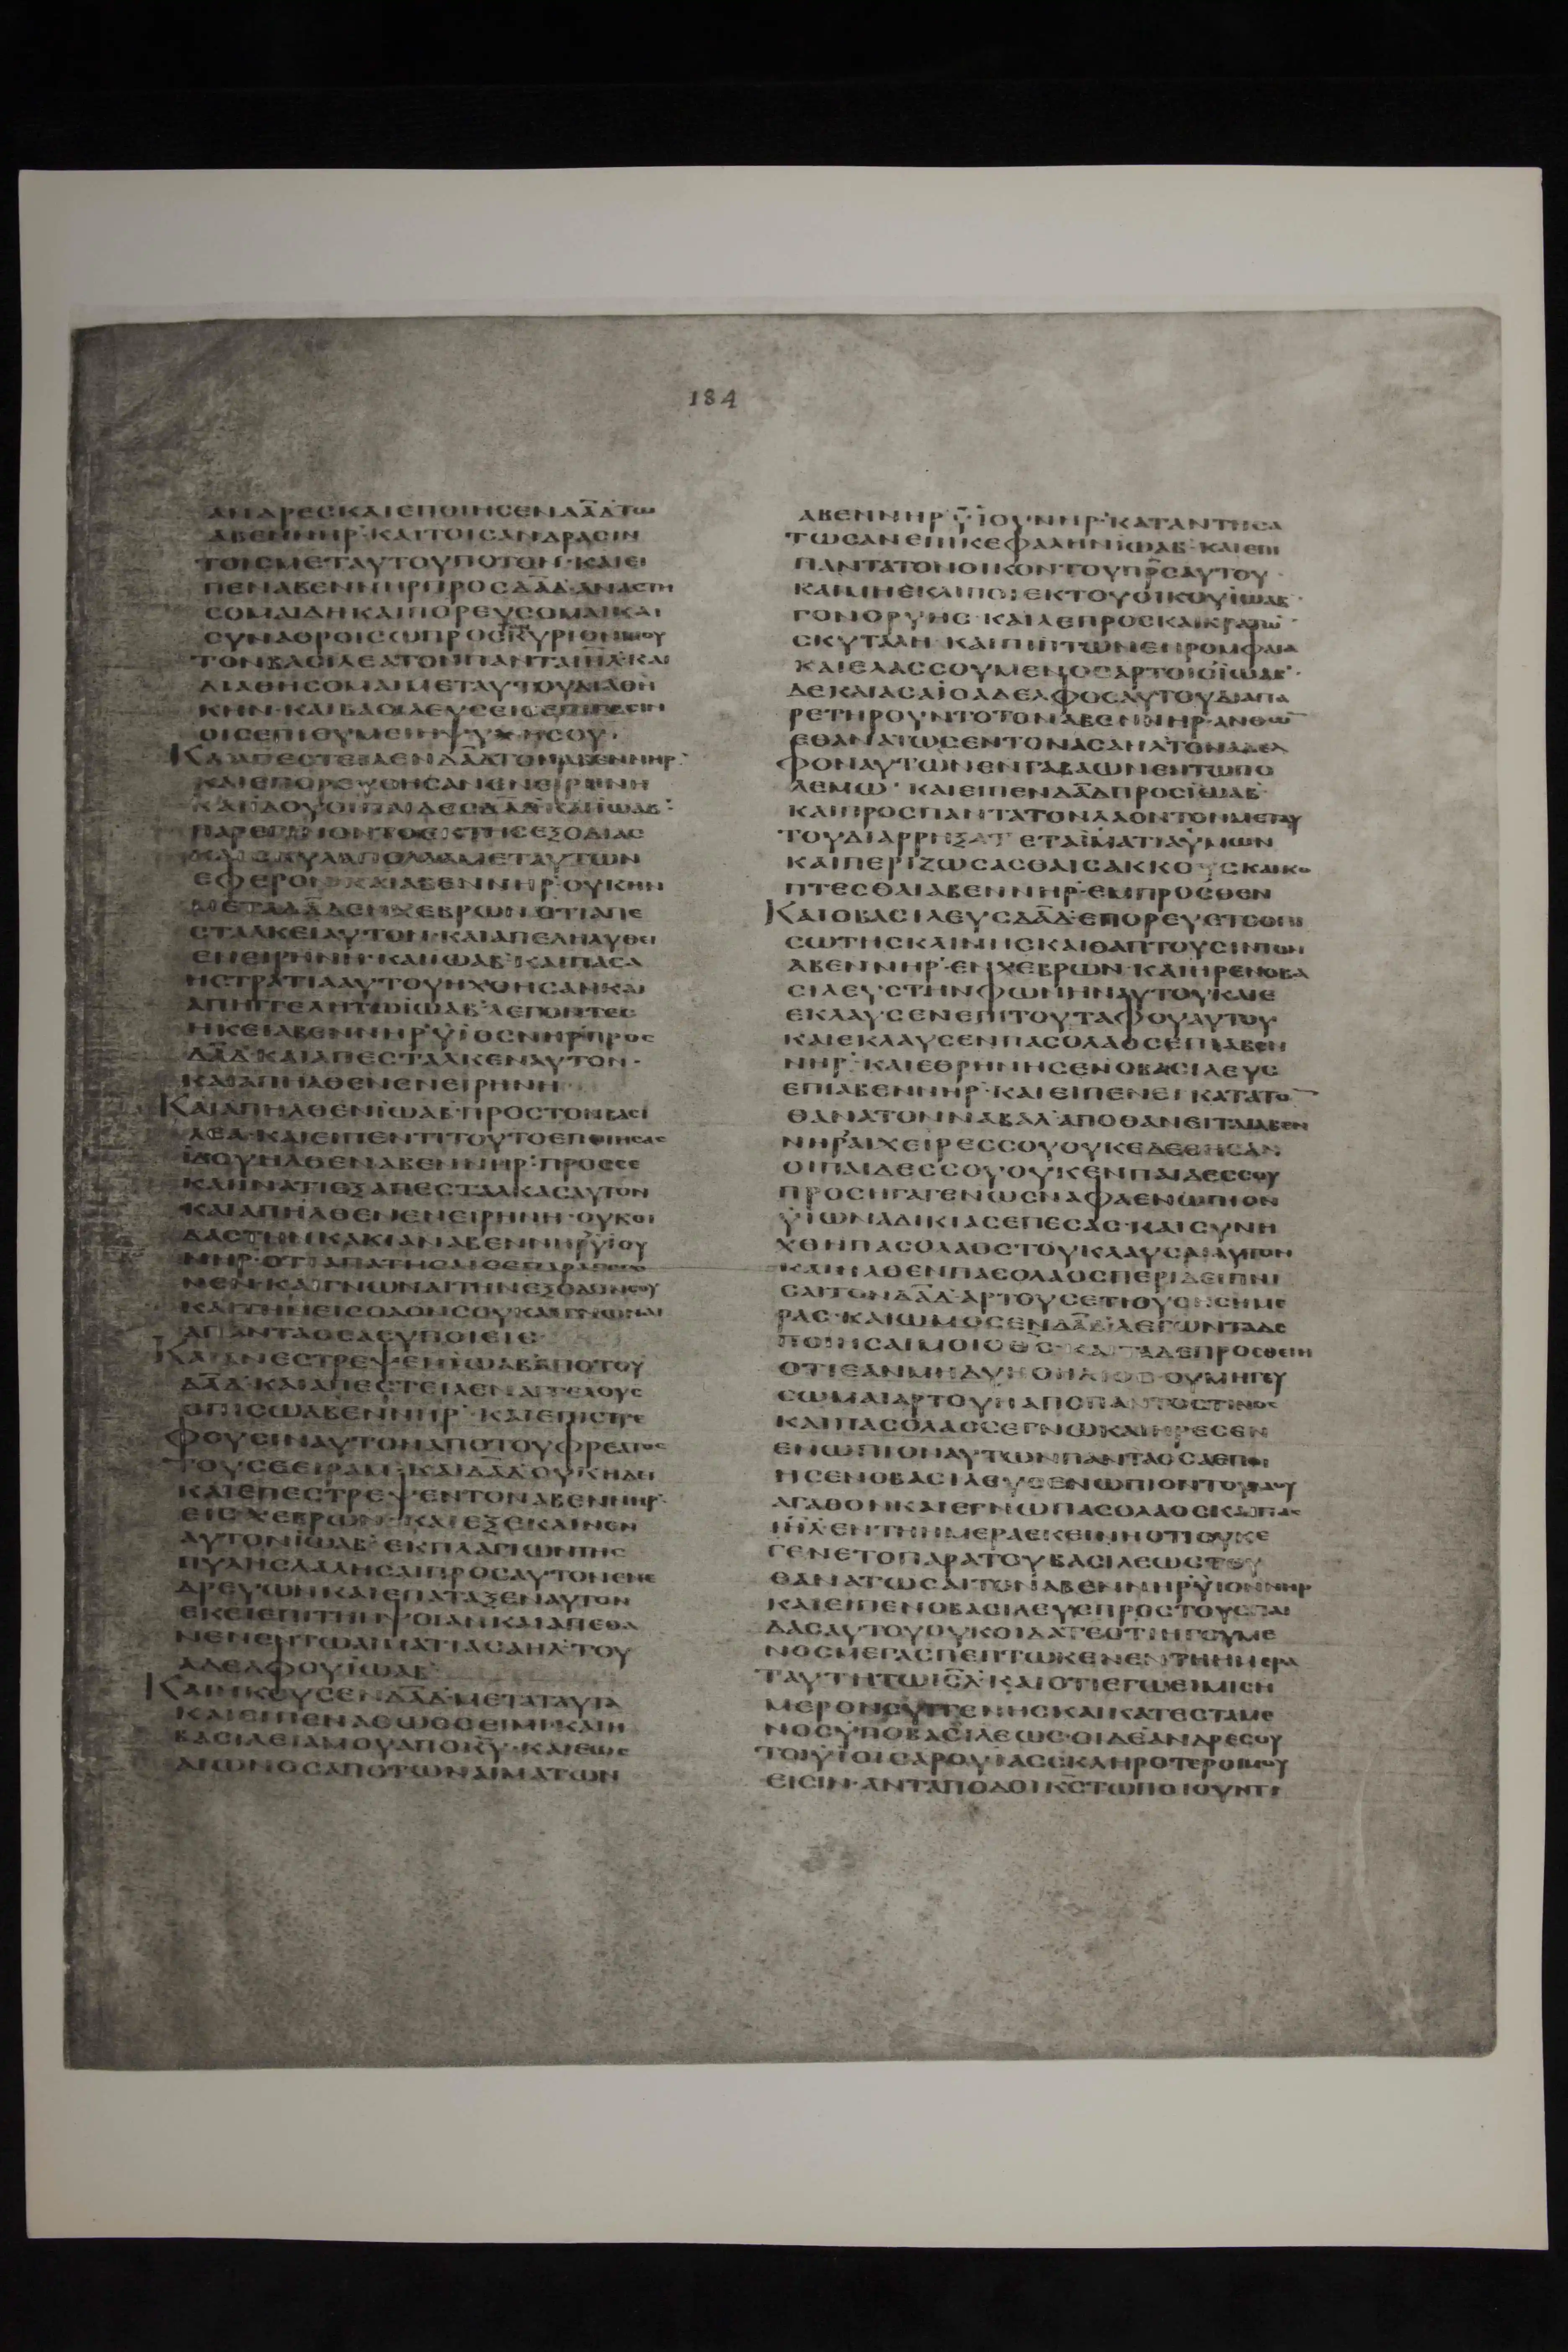 184
ΑΝΔΡΕΣ ΚΑΙ ΕΠΟΙΗΣΕΝ ΔΑΔ ΤΩ
ΑΒΕΝΝΗΡ ΚΑΙ ΤΟΙΣ ΑΝΔΡΑΣΙΝ
ΤΟΙΣ ΜΕΤ ΑΥΤΟΥ ΠΟΤΟΝ· ΚΑΙ ΕΙ
ΠΕΝ ΑΒΕΝΝΗΡ ΠΡΟΣ ΔΑΔ· ΑΝΑΣΤΗ
ΣΟΜΑΙ ΔΗ ΚΑΙ ΠΟΡΕΥΣΟΜΑΙ ΚΑΙ
ΣΥΝΑΘΡΟΙΣΩ ΠΡΟΣ ΚΥΡΙΟΝ ΜΟΥ
ΤΟΝ ΒΑΣΙΛΕΑ ΤΟΝ ΠΑΝΤΑ ΙΗΛ· ΚΑΙ
ΔΙΑΘΗΣΟΜΑΙ ΜΕΤ ΑΥΤΟΥ ΔΙΑΘΗ
ΚΗΝ· ΚΑΙ ΒΑΣΙΛΕΥΣΕΙΣ ΕΠΙ ΠΑΣΙΝ
ΟΙΣ ΕΠΙΘΥΜΕΙ Η ΨΥΧΗ ΣΟΥ·
ΚΑΙ ΑΠΕΣΤΕΙΛΕΝ ΔΑΔ ΤΟΝ ΑΒΕΝΝΗΡ·
ΚΑΙ ΕΠΟΡΕΥΘΗΣΑΝ ΕΝ ΕΙΡΗΝΗ
ΚΑΙ ΙΔΟΥ ΟΙ ΠΑΙΔΕΣ ΔΑΔ ΚΑΙ ΙΩΑΒ·
ΕΞΟΔΙΑΣ
ΜΕΤ ΑΥΤΩΝ
ΕΦΕΡΟΝ ΚΑΙ ΑΒΕΝΝΗΡ ΟΥΚ ΗΝ
ΜΕΤΑ ΔΑΔ ΕΝ ΧΕΒΡΩΝ ΟΤΙ ΑΠΕ
ΣΤΑΛΚΕΙ ΑΥΤΟΝ· ΚΑΙ ΑΠΕΛΗΛΥΘΕΙ
ΕΝ ΕΙΡΗΝΗ· ΚΑΙ ΙΩΑΒ ΚΑΙ ΠΑΣΑ
Η ΣΤΡΑΤΙΑ ΑΥΤΟΥ ΗΧΘΗΣΑΝ ΚΑΙ
ΑΠΗΓΓΕΛΗ ΤΩ ΙΩΑΒ ΛΕΓΟΝΤΕΣ
ΗΚΕΙ ΑΒΕΝΝΗΡ ΥΙΟΣ ΝΗΡ ΠΡΟΣ
ΔΑΔ· ΚΑΙ ΑΠΕΣΤΑΛΚΕΝ ΑΥΤΟΝ·
ΚΑΙ ΑΠΗΛΘΕΝ ΕΝ ΕΙΡΗΝΗ
ΚΑΙ ΑΠΗΛΘΕΝ ΙΩΑΒ ΠΡΟΣ ΤΟΝ ΒΑΣΙ
ΛΕΑ· ΚΑΙ ΕΙΠΕΝ ΤΙ ΤΟΥΤΟ ΕΠΟΙΗΣΑΣ
ΙΔΟΥ ΗΛΘΕΝ ΑΒΕΝΝΗΡ· ΠΡΟΣ ΣΕ
ΚΑΙ ΙΝΑ ΤΙ ΕΞΑΠΕΣΤΑΛΚΑΣ ΑΥΤΟΝ
ΚΑΙ ΑΠΗΛΘΕΝ ΕΝ ΕΙΡΗΝΗ· ΟΥΚ ΟΙ
ΔΑΣ ΤΗΝ ΚΑΚΙΑΝ ΑΒΕΝΝΗΡ ΥΙΟΥ
ΝΗΡ· ΟΤΙ ΑΠΑΤΗΣΑΙ ΣΕ ΠΑΡΑΓΕΓΟ
ΝΕΝ· ΚΑΙ ΓΝΩΝΑΙ ΤΗΝ ΕΞΟΔΟΝ ΣΟΥ
ΚΑΙ ΤΗΝ ΕΙΣΟΔΟΝ ΣΟΥ· ΚΑΙ ΓΝΩΝΑΙ
ΑΠΑΝΤΑ ΟΣΑ ΣΥ ΠΟΙΕΙΣ·
ΚΑΙ ΑΝΕΣΤΡΕΨΕΝ ΙΩΑΒ ΑΠΟ ΤΟΥ
ΔΑΔ· ΚΑΙ ΑΠΕΣΤΕΙΛΕΝ ΑΓΓΕΛΟΥΣ
ΟΠΙΣΩ ΑΒΕΝΝΗΡ· ΚΑΙ ΕΠΙΣΤΡΕ
ΦΟΥΣΙΝ ΑΥΤΟΝ ΑΠΟ ΤΟΥ ΦΡΕΑΤΟΣ
ΤΟΥ ΣΕΕΙΡΑΜ· ΚΑΙ ΔΑΔ ΟΥΚ ΗΔΕΙ
ΚΑΙ ΕΠΕΣΤΡΕΨΕΝ ΤΟΝ ΑΒΕΝΝΗΡ·
ΕΙΣ ΧΕΒΡΩΝ· ΚΑΙ ΕΞΕΚΛΙΝΕΝ
ΑΥΤΟΝ ΙΩΑΒ ΕΚ ΠΛΑΓΙΩΝ ΤΗΣ
ΠΥΛΗΣ ΛΑΛΗΣΑΙ ΠΡΟΣ ΑΥΤΟΝ ΕΝΕ
ΔΡΕΥΩΝ ΚΑΙ ΕΠΑΤΑΞΕΝ ΑΥΤΟΝ
ΕΚΕΙ ΕΠΙ ΤΗΝ ΨΟΙΑΝ ΚΑΙ ΑΠΕΘΑ
ΝΕΝ ΕΝ ΤΩ ΑΙΜΑΤΙ ΑΣΑΗΛ ΤΟΥ
ΑΔΕΛΦΟΥ ΙΩΑΒ
ΚΑΙ ΗΚΟΥΣΕΝ ΔΑΔ ΜΕΤΑ ΤΑΥΤΑ
ΚΑΙ ΕΙΠΕΝ ΑΘΩΟΣ ΕΙΜΙ· ΚΑΙ Η
ΒΑΣΙΛΕΙΑ ΜΟΥ ΑΠΟ ΚΥ· ΚΑΙ ΕΩΣ
ΑΙΩΝΟΣ ΑΠΟ ΤΩΝ ΑΙΜΑΤΩΝ
ΑΒΕΝΝΗΡ ΥΙΟΥ ΝΗΡ· ΚΑΤΑΝΤΗΣΑ
ΤΩΣΑΝ ΕΠΙ ΚΕΦΑΛΗΝ ΙΩΑΒ· ΚΑΙ ΕΠΙ
ΠΑΝΤΑ ΤΟΝ ΟΙΚΟΝ ΤΟΥ ΠΡΣ ΑΥΤΟΥ·
ΚΑΙ ΜΗ ΕΚΛΙΠΟΙ ΕΚ ΤΟΥ ΟΙΚΟΥ ΙΩΑΒ·
ΓΟΝΟΡΥΗΣ· ΚΑΙ ΛΕΠΡΟΣ ΚΑΙ ΚΡΑΤΩ
ΣΚΥΤΑΛΗ· ΚΑΙ ΠΙΠΤΩΝ ΕΝ ΡΟΜΦΑΙΑ
ΚΑΙ ΕΛΑΣΣΟΥΜΕΝΟΣ ΑΡΤΟΙΣ ΙΩΑΒ·
ΔΕ ΚΑΙ ΑΣΑΙ Ο ΑΔΕΛΦΟΣ ΑΥΤΟΥ ΔΙΑΠΑ
ΡΕΤΗΡΟΥΝΤΟ ΤΟΝ ΑΒΕΝΝΗΡ· ΑΝΘ Ω
ΕΘΑΝΑΤΩΣΕΝ ΤΟΝ ΑΣΑΗΛ ΤΟΝ ΑΔΕΛ
ΦΟΝ ΑΥΤΩΝ ΕΝ ΓΑΒΑΩΝ ΕΝ ΤΩ ΠΟ
ΛΕΜΩ· ΚΑΙ ΕΙΠΕΝ ΔΑΔ ΠΡΟΣ ΙΩΑΒ
ΚΑΙ ΠΡΟΣ ΠΑΝΤΑ ΤΟΝ ΛΑΟΝ ΤΟΝ ΜΕΤ ΑΥ
ΤΟΥ ΔΙΑΡΡΗΞΑΤΕ ΤΑ ΙΜΑΤΙΑ ΥΜΩΝ
ΚΑΙ ΠΕΡΙΖΩΣΑΣΘΑΙ ΣΑΚΚΟΥΣ ΚΑΙ ΚΟ
ΠΤΕΣΘΑΙ ΑΒΕΝΝΗΡ· ΕΜΠΡΟΣΘΕΝ
ΚΑΙ Ο ΒΑΣΙΛΕΥΣ ΔΑΔ· ΕΠΟΡΕΥΕΤΟ ΟΠΙ
ΣΩ ΤΗΣ ΚΛΙΝΗΣ ΚΑΙ ΘΑΠΤΟΥΣΙΝ ΤΟΝ
ΑΒΕΝΝΗΡ· ΕΝ ΧΕΒΡΩΝ· ΚΑΙ ΗΡΕΝ Ο ΒΑ
ΣΙΛΕΥΣ ΤΗΝ ΦΩΝΗΝ ΑΥΤΟΥ ΚΑΙ Ε
ΕΚΛΑΥΣΕΝ ΕΠΙ ΤΟΥ ΤΑΦΟΥ ΑΥΤΟΥ
ΚΑΙ ΕΚΛΑΥΣΕΝ ΠΑΣ Ο ΛΑΟΣ ΕΠΙ ΑΒΕΝ
ΝΗΡ· ΚΑΙ ΕΘΡΗΝΗΣΕΝ Ο ΒΑΣΙΛΕΥΣ
ΕΠΙ ΑΒΕΝΝΗΡ· ΚΑΙ ΕΙΠΕΝ ΕΙ ΚΑΤΑ ΤΟ
ΘΑΝΑΤΟΝ ΝΑΒΑΛ ΑΠΟΘΑΝΕΙΤΑΙ ΑΒΕΝ
ΝΗΡ ΑΙ ΧΕΙΡΕΣ ΣΟΥ ΟΥΚ ΕΔΕΘΗΣΑΝ
ΟΙ ΠΑΙΔΕΣ ΣΟΥ ΟΥΚ ΕΝ ΠΑΙΔΕΣ ΣΟΥ
ΠΡΟΣΗΓΑΓΕΝ ΩΣ ΝΑΦΑ ΕΝΩΠΙΟΝ
ΥΙΩΝ ΑΔΙΚΙΑΣ ΕΠΕΣΑΣ· ΚΑΙ ΣΥΝΗ
ΧΘΗ ΠΑΣ Ο ΛΑΟΣ ΤΟΥ ΚΛΑΥΣΑΙ ΑΥΤΟΝ
ΚΑΙ ΗΛΘΕΝ ΠΑΣ Ο ΛΑΟΣ ΠΕΡΙΔΕΙΠΝΙ
ΣΑΙ ΤΟΝ ΔΑΔ· ΑΡΤΟΥΣ ΕΤΙ ΟΥΣΗΣ ΗΜΕ
ΡΑΣ· ΚΑΙ ΩΜΟΣΕΝ ΔΑΔ ΛΕΓΩΝ ΤΑΔΕ
ΠΟΙΗΣΑΙ ΜΟΙ Ο ΘΣ· ΚΑΙ ΤΑΔΕ ΠΡΟΣΘΕΙΗ
ΟΤΙ ΕΑΝ ΜΗ ΔΥΗ Ο ΗΛΙΟΣ ΟΥ ΜΗ ΓΕΥ
ΣΩΜΑΙ ΑΡΤΟΥ Η ΑΠΟ ΠΑΝΤΟΣ ΤΙΝΟΣ
ΚΑΙ ΠΑΣ Ο ΛΑΟΣ ΕΓΝΩ ΚΑΙ ΗΡΕΣΕΝ
ΕΝΩΠΙΟΝ ΑΥΤΩΝ ΠΑΝΤΑ ΟΣΑ ΕΠΟΙ
ΗΣΕΝ Ο ΒΑΣΙΛΕΥΣ ΕΝΩΠΙΟΝ ΤΟΥ ΛΑΟΥ
ΑΓΑΘΟΝ ΚΑΙ ΕΓΝΩ ΠΑΣ Ο ΛΑΟΣ ΚΑΙ ΠΑΣ
ΙΗΛ· ΕΝ ΤΗ ΗΜΕΡΑ ΕΚΕΙΝΗ ΟΤΙ ΟΥΚ Ε
ΓΕΝΕΤΟ ΠΑΡΑ ΤΟΥ ΒΑΣΙΛΕΩΣ ΤΟΥ
ΘΑΝΑΤΩΣΑΙ ΤΟΝ ΑΒΕΝΝΗΡ ΥΙΟΝ ΝΗΡ
ΚΑΙ ΕΙΠΕΝ Ο ΒΑΣΙΛΕΥΣ ΠΡΟΣ ΤΟΥΣ ΠΑΙ
ΔΑΣ ΑΥΤΟΥ ΟΥΚ ΟΙΔΑΤΕ ΟΤΙ ΗΓΟΥΜΕ
ΝΟΣ ΜΕΓΑΣ ΠΕΠΤΩΚΕΝ ΕΝ ΤΗ ΗΜΕΡΑ
ΤΑΥΤΗ ΤΩ ΙΣΛ· ΚΑΙ ΟΤΙ ΕΓΩ ΕΙΜΙ ΣΗ
ΜΕΡΟΝ ΣΥΓΓΕΝΗΣ ΚΑΙ ΚΑΤΕΣΤΑΜΕ
ΝΟΣ ΥΠΟ ΒΑΣΙΛΕΩΣ· ΟΙ ΔΕ ΑΝΔΡΕΣ ΟΥ
ΤΟΙ ΥΙΟΙ ΣΑΡΟΥΙΑΣ ΣΚΛΗΡΟΤΕΡΟΙ ΜΟΥ
ΕΙΣΙΝ· ΑΝΤΑΠΟΔΟΙ ΚΣ ΤΩ ΠΟΙΟΥΝΤΙ